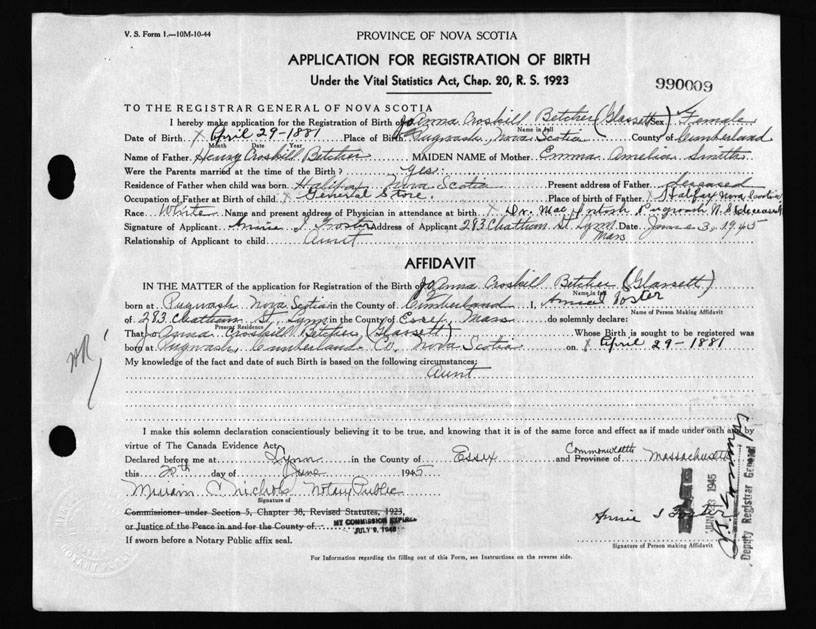 V. S. Form 1.—10M-10-44
PROVINCE OF NOVA SCOTIA
APPLICATION FOR REGISTRATION OF BIRTH
Under the Vital Statistics Act, Chap. 20, R. S. 1923
990009
TO THE REGISTRAR GENERAL OF NOVA SCOTIA
I hereby make application for the Registration of Birth of Joanna Croskill Betcher (Glassett) Sex Female
Name in full
Date of Birth X April 29-1881 Place of Birth Pugwash, Nova Scotia County of Cumberland
Month Date Year
Name of Father Henry Croskill Betcher MAIDEN NAME of Mother Emma Amelia Smith
Were the Parents married at the time of the Birth? yes.
Residence of Father when child was born. Halifax Nova Scotia Present address of Father deceased
Occupation of Father at Birth of child. X General Store. Place of birth of Father X Halifax Nova Scotia
Race White Name and present address of Physician in attendance at birth X Dr. Mac Intosh Pugwash N.S. Deceased
Signature of Applicant Annie I Foster Address of Applicant 283 Chatham St. Lynn Mass Date June 20 1945
Relationship of Applicant to child Aunt
AFFIDAVIT
IN THE MATTER of the application for Registration of the Birth of Joanna Croskill Betcher (Glassett)
Name in full
born at Pugwash Nova Scotia in the County of Cumberland I, Annie I Foster
Name of Person Making Affidavit
of 283 Chatham St, Lynn in the County of Essex Mass do solemnly declare:
Present Residence
That Joanna Croskill Betcher (Glassett) Whose Birth is sought to be registered was
born at Pugwash, Cumberland Co, Nova Scotia on X April 29-1881
My knowledge of the fact and date of such Birth is based on the following circumstances:
Aunt
I make this solemn declaration conscientiously believing it to be true, and knowing that it is of the same force and effect as if made under oath and by
virtue of The Canada Evidence Act.
Declared before me at Lynn in the County of Essex and Province of Commonwealth Massachusetts
this 20th day of June 1945
Miriam C Nichols Notary Public
Signature of
Commissioner under Section 5, Chapter 38, Revised Statutes, 1923,
or Justice of the Peace in and for the County of
MY COMMISSION EXPIRES
JULY 9, 1948
If sworn before a Notary Public affix seal.
Annie I Foster
Signature of Person making Affidavit
Deputy Registrar General
1945
For Information regarding the filling out of this Form, see Instructions on the reverse side.